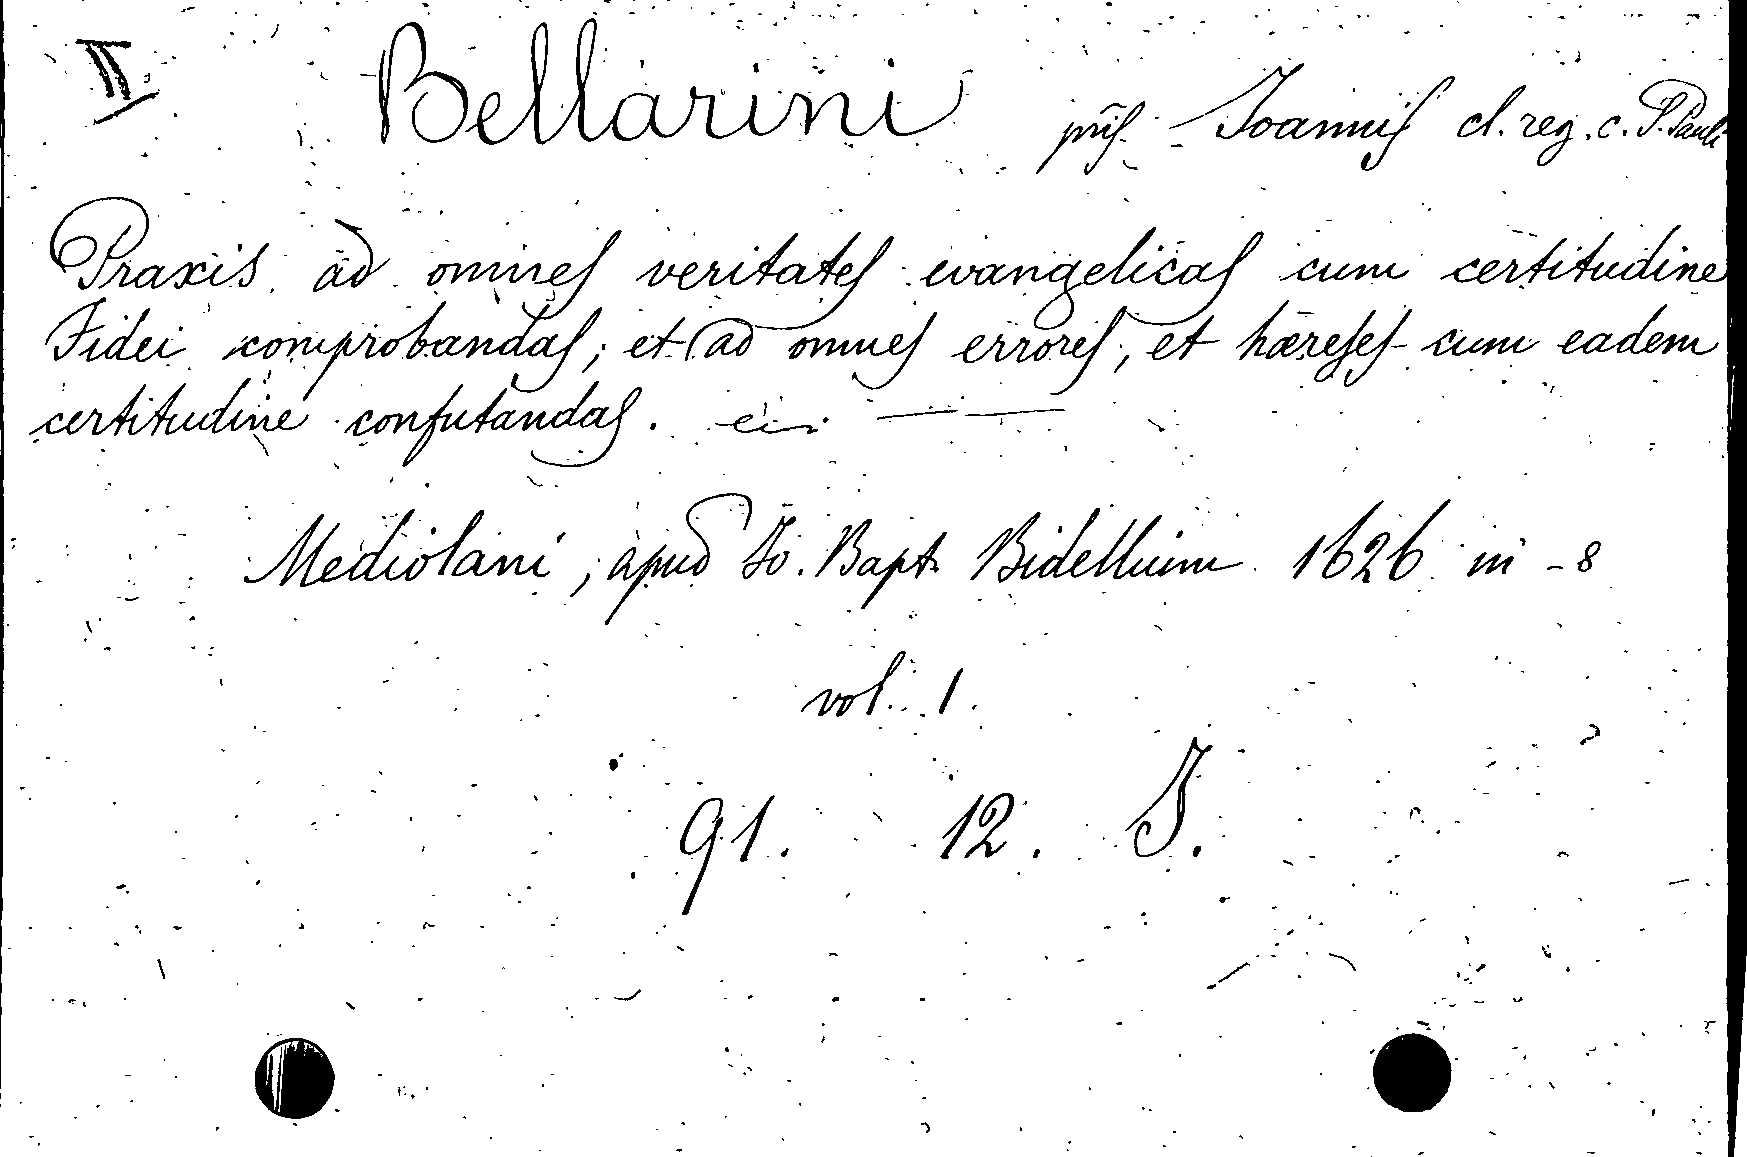 II Bellarini Joannis cl. reg. c. S. Pauli
Praxis ad omnes veritates evangelicas cum certitudine
Fidei comprobandas; et ad omnes errores, et hæreses cum eadem
certitudine confutandas.
Mediolani, apud Jo. Bapt. Bidellium 1626 in - 8
vol. 1.
91. 12. J.